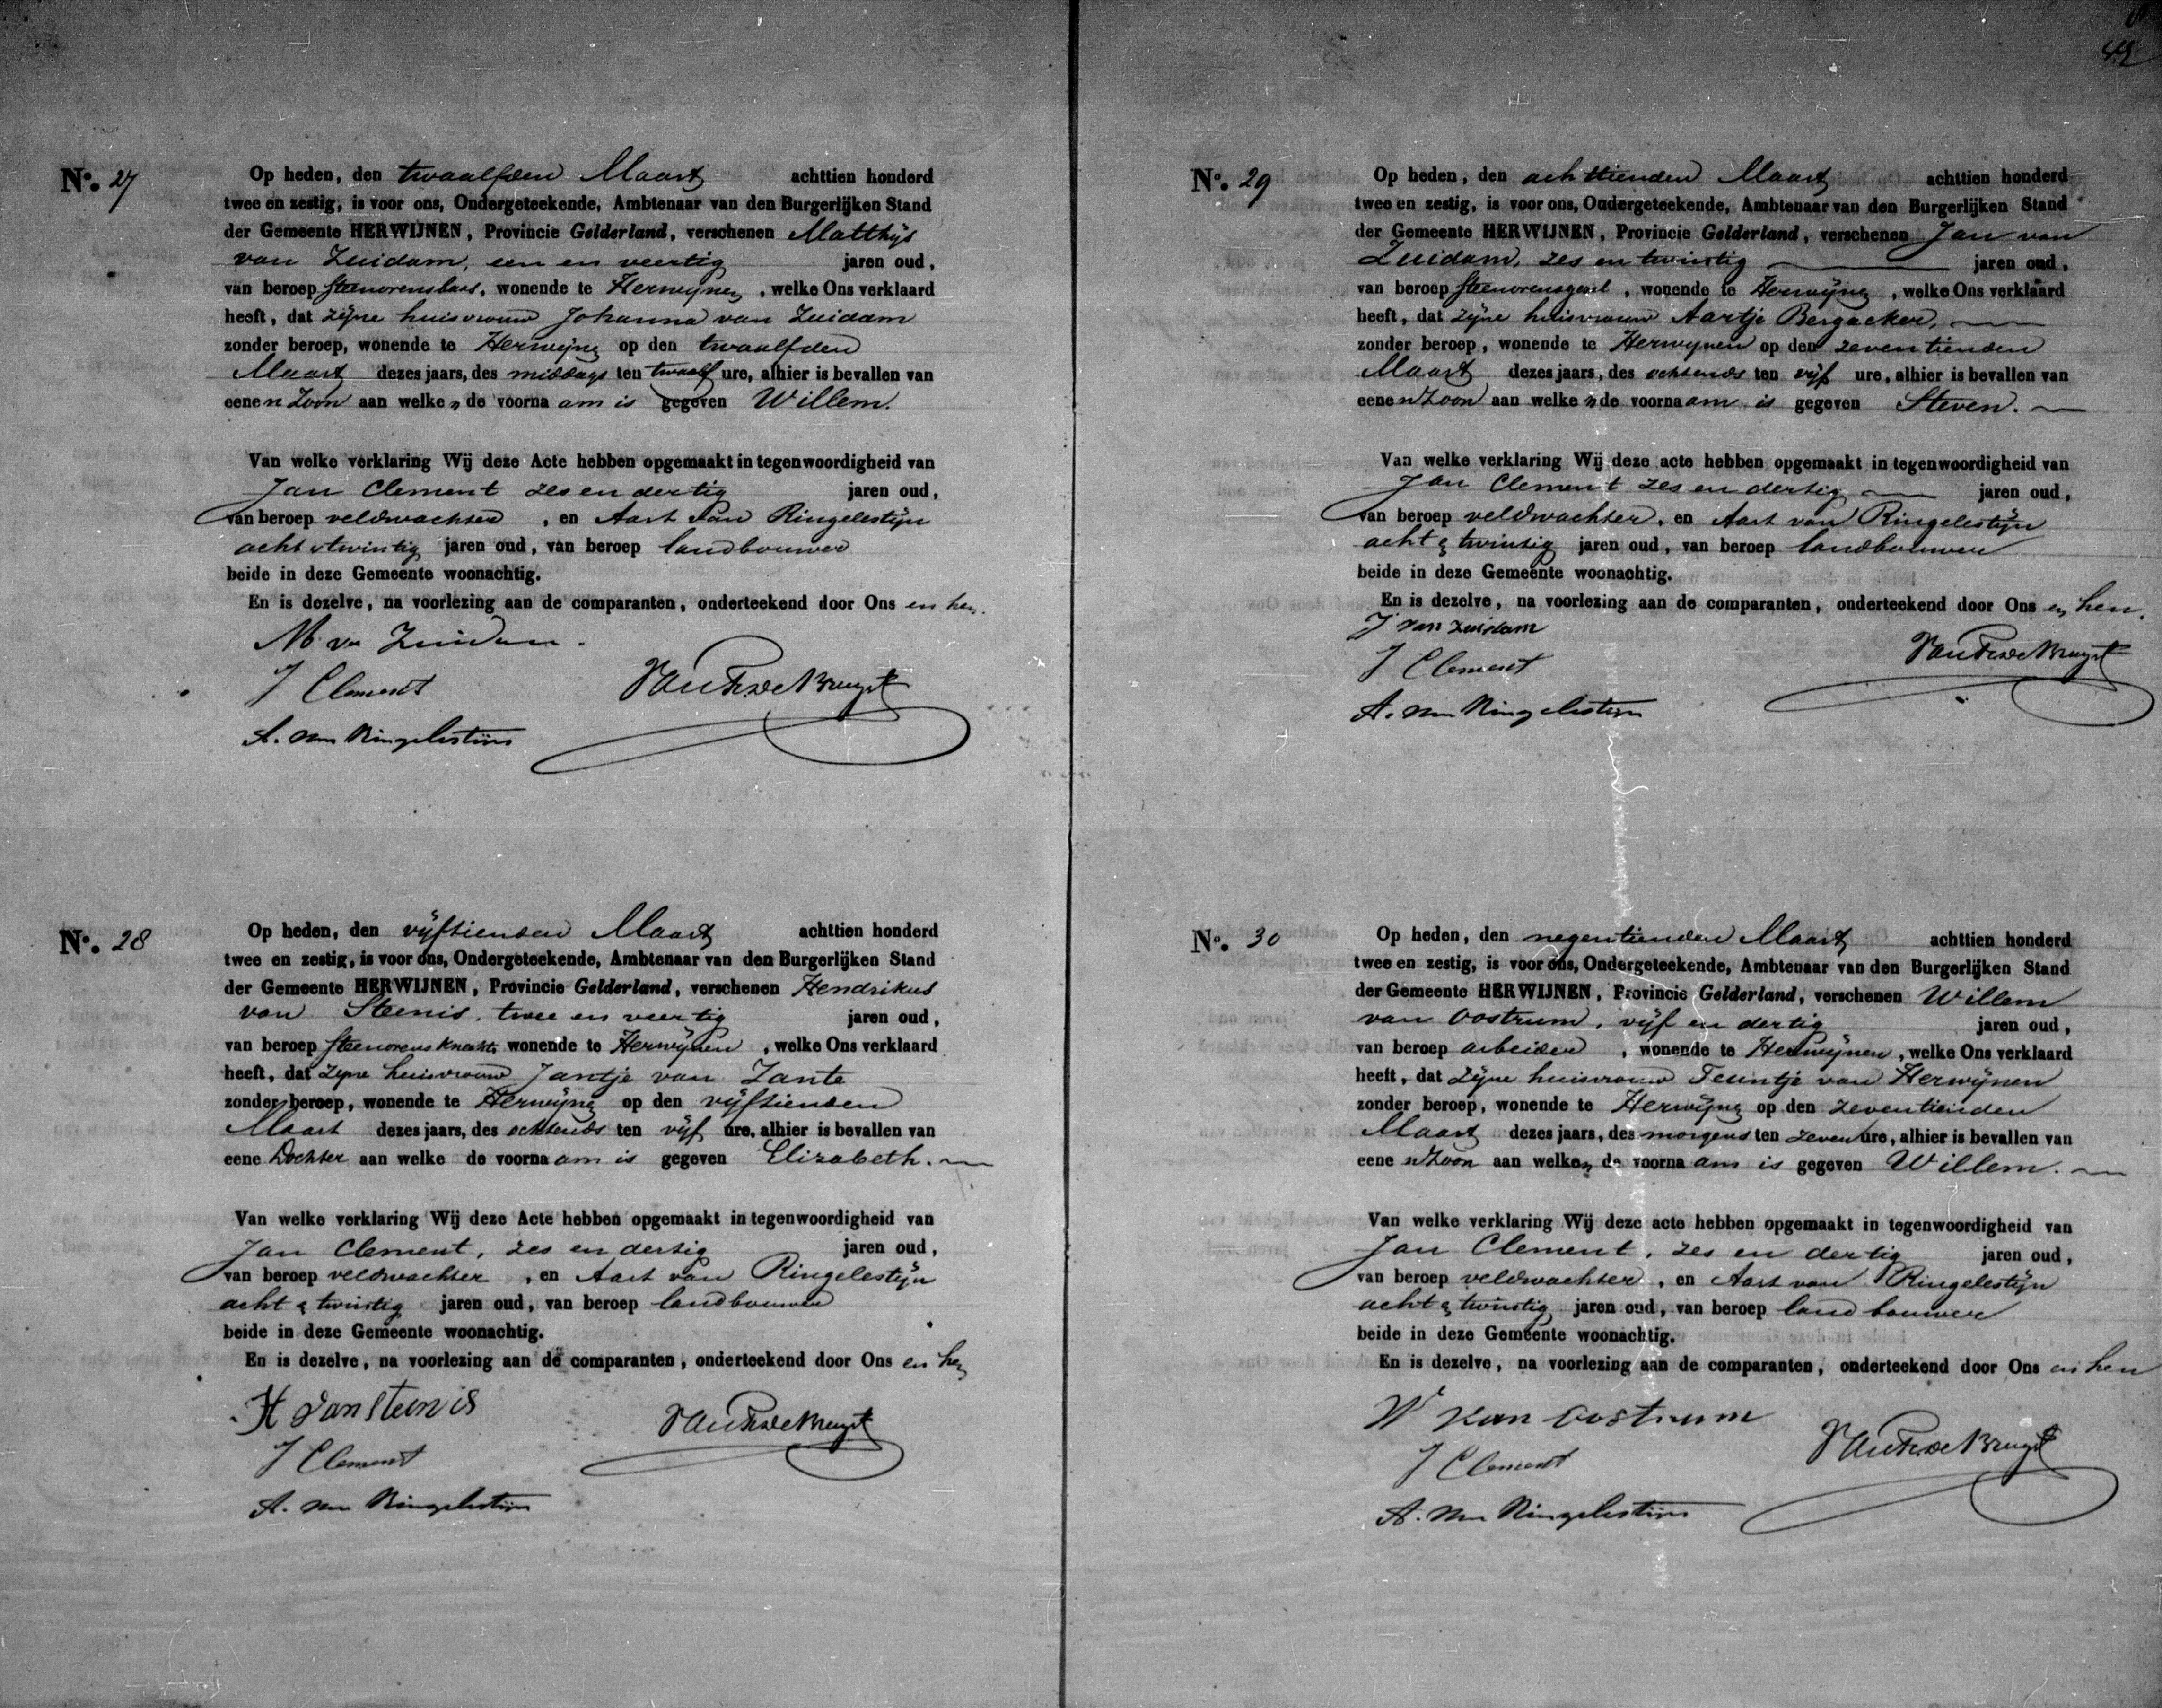 42
No. 27
Op heden, den twaalfden Maart achttien honderd
twee en zestig, is voor ons, Ondergeteekende, Ambtenaar van den Burgerlijken Stand
der Gemeente HERWIJNEN, Provincie Gelderland, verschenen Matthijs
van Zuidam, een en veertig jaren oud,
van beroep steenovensbaas, wonende te Herwijnen, welke Ons verklaard
heeft, dat zijne huisvrouw Johanna van Zuidam
zonder beroep, wonende te Herwijnen op den twaalfden
Maart dezes jaars, des middags ten twaalf ure, alhier is bevallen van
eenen Zoon aan welken de voornaam is gegeven Willem.
Van welke verklaring Wij deze Acte hebben opgemaakt in tegenwoordigheid van
Jan Clement zes en dertig jaren oud,
van beroep veldwachter, en Aart van Ringelestijn
acht & twintig jaren oud, van beroep landbouwer
beide in deze Gemeente woonachtig.
En is dezelve, na voorlezing aan de comparanten, onderteekend door Ons en hen.
M. v. Zuidam
J Clement
A. van Ringelestijn
No. 28
Op heden, den vijftienden Maart achttien honderd
twee en zestig, is voor ons, Ondergeteekende, Ambtenaar van den Burgerlijken Stand
der Gemeente HERWIJNEN, Provincie Gelderland, verschenen Hendrikus
van Steenis, twee en veertig jaren oud,
van beroep steenovensknecht, wonende te Herwijnen, welke Ons verklaard
heeft, dat zijne huisvrouw Jantje van Zante
zonder beroep, wonende te Herwijnen op den vijftienden
Maart dezes jaars, des ochtends ten vijf ure, alhier is bevallen van
eene Dochter aan welke de voornaam is gegeven Elizabeth.
Van welke verklaring Wij deze Acte hebben opgemaakt in tegenwoordigheid van
Jan Clement, zes en dertig jaren oud,
van beroep veldwachter, en Aart van Ringelestijn
acht & twintig jaren oud, van beroep landbouwer
beide in deze Gemeente woonachtig.
En is dezelve, na voorlezing aan de comparanten, onderteekend door Ons en hen
H van Steenis
J Clement
A. van Ringelestijn
No. 29
Op heden, den achttienden Maart achttien honderd
twee en zestig, is voor ons, Ondergeteekende, Ambtenaar van den Burgerlijken Stand
der Gemeente HERWIJNEN, Provincie Gelderland, verschenen Jan van
Zuidam, zes en twintig jaren oud,
van beroep steenovensgezel, wonende te Herwijnen, welke Ons verklaard
heeft, dat zijne huisvrouw Aartje Bergacker,
zonder beroep, wonende te Herwijnen op den zeventienden
Maart dezes jaars, des ochtends ten vijf ure, alhier is bevallen van
eenen Zoon aan welken de voornaam is gegeven Steven.
Van welke verklaring Wij deze acte hebben opgemaakt in tegenwoordigheid van
Jan Clement zes en dertig jaren oud,
van beroep veldwachter, en Aart van Ringelestijn
acht & twintig jaren oud, van beroep landbouwer
beide in deze Gemeente woonachtig.
En is dezelve, na voorlezing aan de comparanten, onderteekend door Ons en hen.
J van Zuidam
J Clement
A. van Ringelestijn
No. 30
Op heden, den negentienden Maart achttien honderd
twee en zestig, is voor ons, Ondergeteekende, Ambtenaar van den Burgerlijken Stand
der Gemeente HERWIJNEN, Provincie Gelderland, verschenen Willem
van Oostrum, vijf en dertig jaren oud,
van beroep arbeider, wonende te Herwijnen, welke Ons verklaard
heeft, dat zijne huisvrouw Teuntje van Herwijnen
zonder beroep, wonende te Herwijnen op den zeventienden
Maart dezes jaars, des morgens ten zeven ure, alhier is bevallen van
eenen Zoon aan welken de voornaam is gegeven Willem.
Van welke verklaring Wij deze acte hebben opgemaakt in tegenwoordigheid van
Jan Clement, zes en dertig jaren oud,
van beroep veldwachter, en Aart van Ringelestijn
acht & twintig jaren oud, van beroep landbouwer
beide in deze Gemeente woonachtig.
En is dezelve, na voorlezing aan de comparanten, onderteekend door Ons en hen
W van Oostrum
J Clement
A. van Ringelestijn